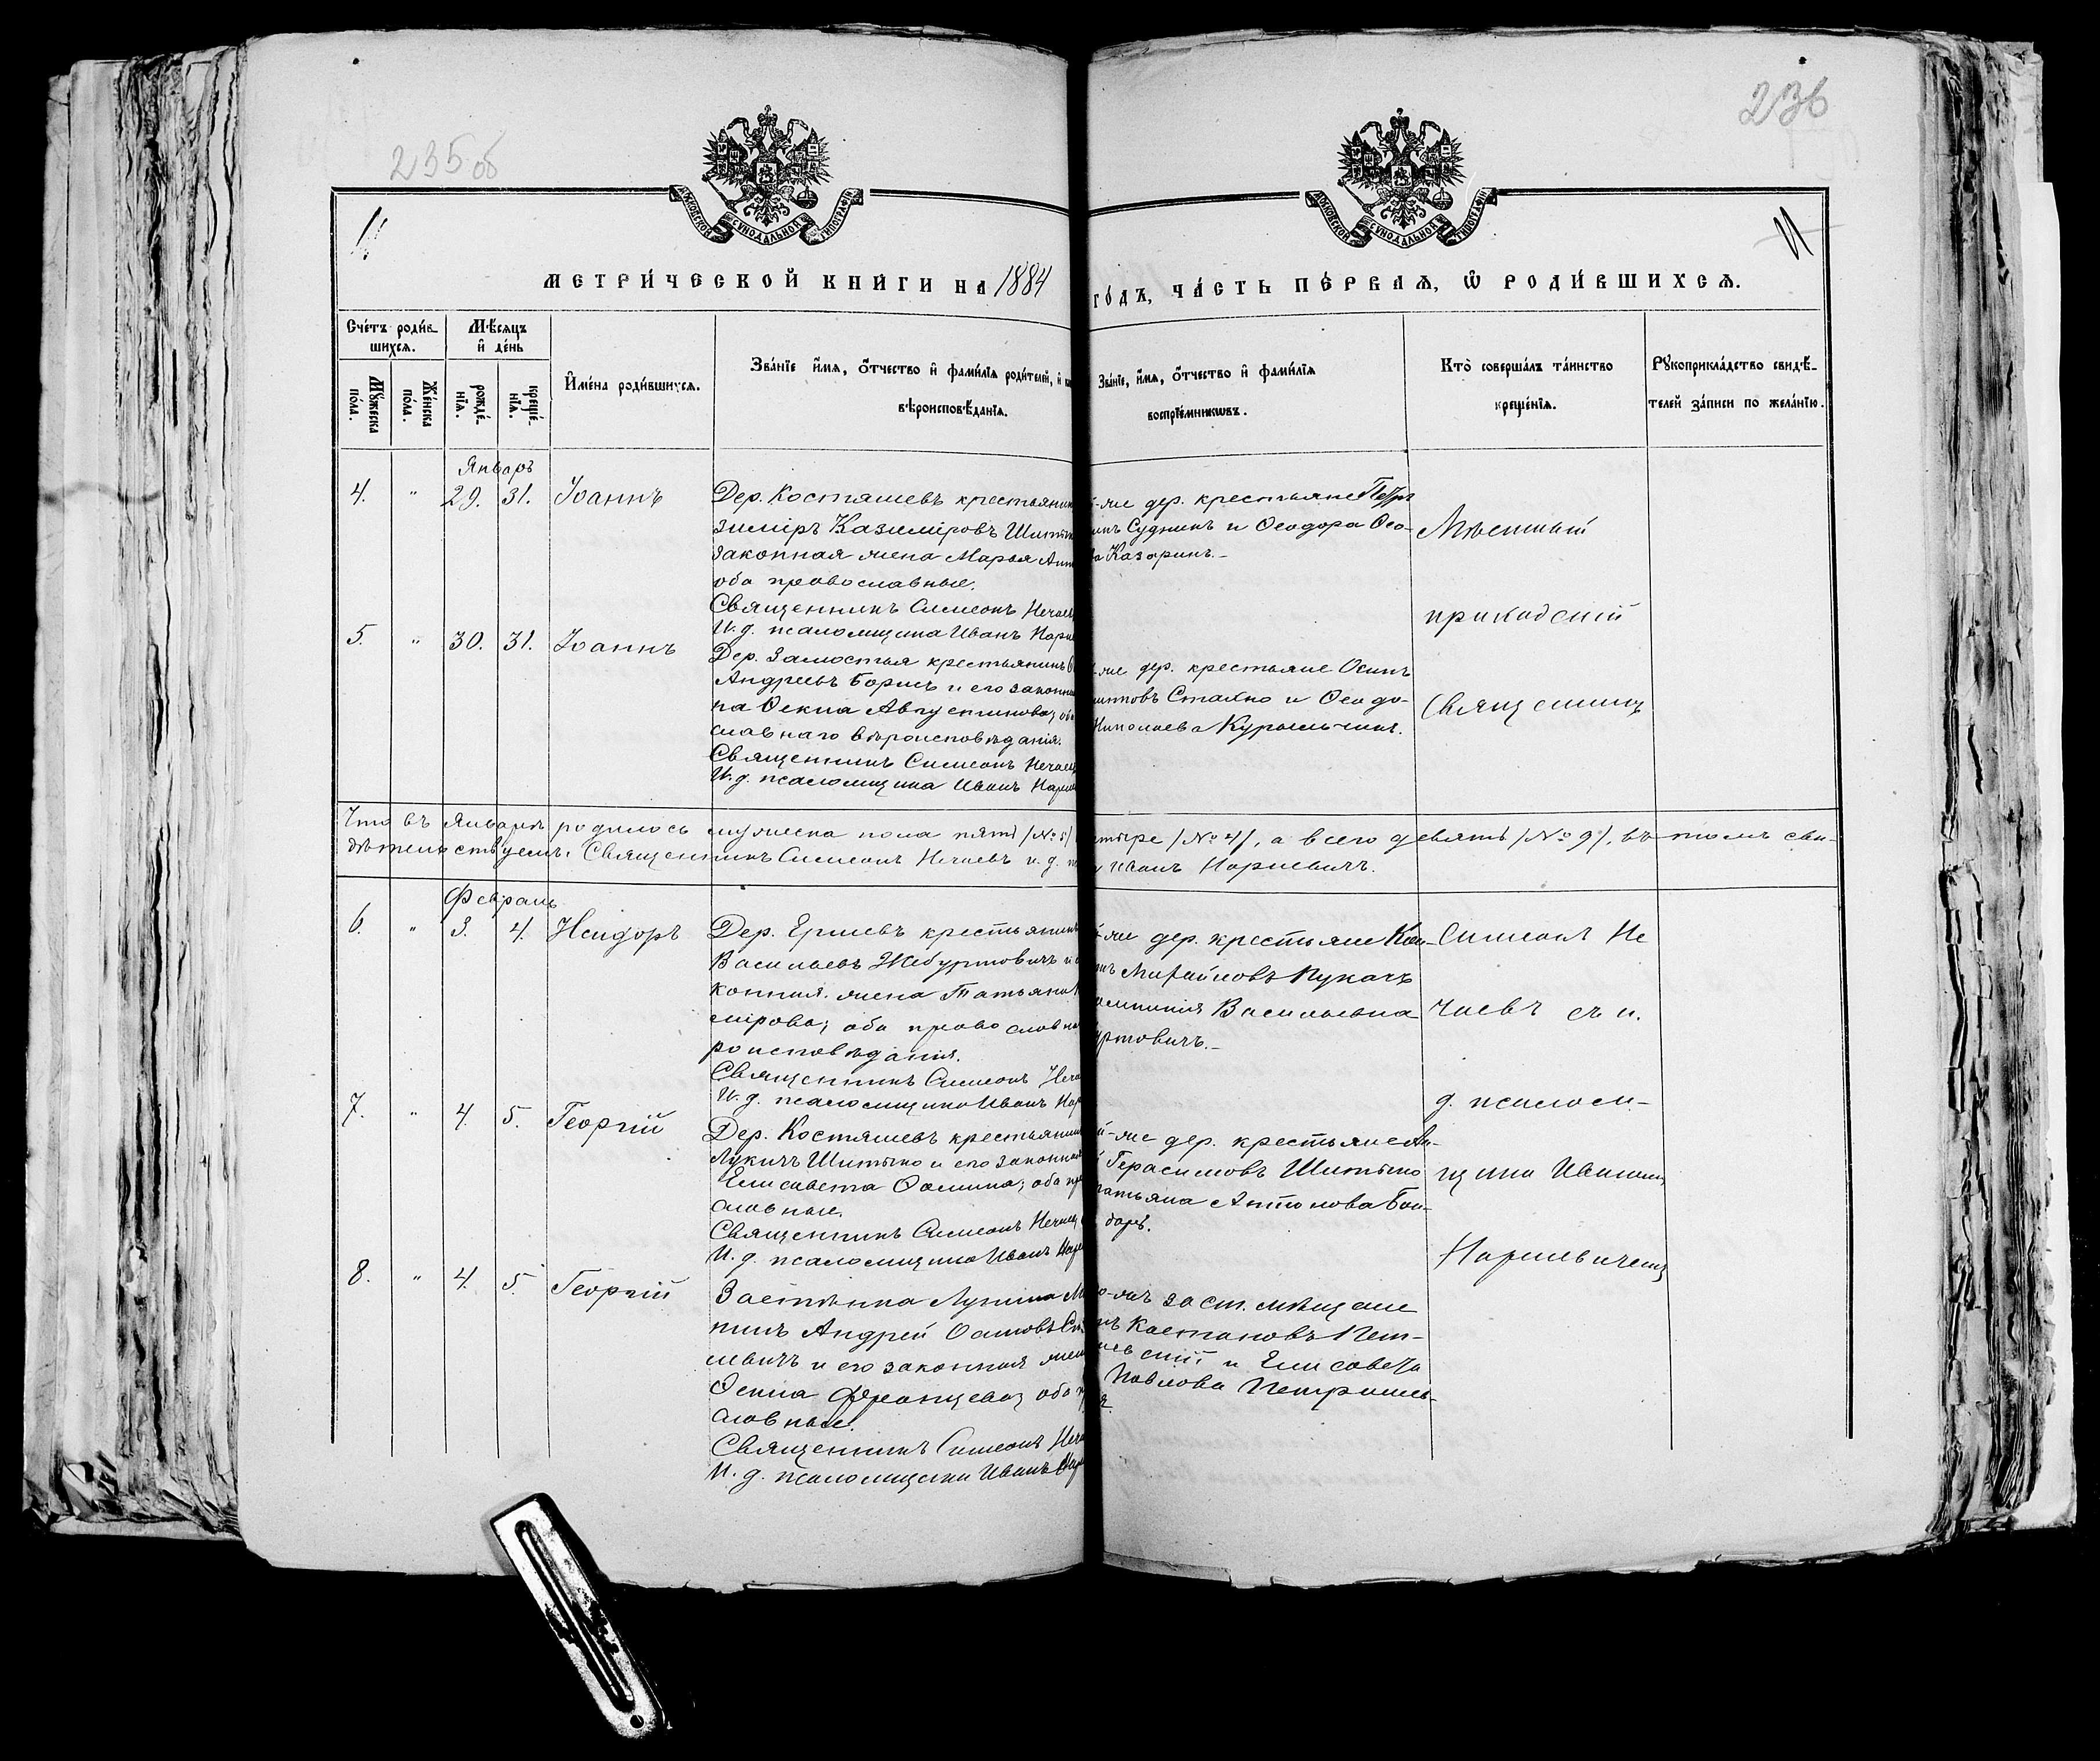 235об
236
МОСКОВСКОЙ СУНОДАЛЬНОЙ ТИПОГРАФІИ
МОСКОВСКОЙ СУНОДАЛЬНОЙ ТИПОГРАФІИ
11
МЕТРИ́ЧЕСКОЙ КНИ́ГИ НА 1884 ГО́ДЪ, ЧА́СТЬ ПЕ́РВАѦ, Ѡ҆ РОДИ́ВШИХСѦ.
Сче́тъ роди́в-
шихсѧ.
Мѣ́сѧцъ
и҆ де́нь
Мꙋ́жеска
по́ла.
Же́нска
по́ла.
рожде́-
нїѧ.
креще́-
нїѧ.
И҆мена̀ роди́вшихсѧ.
Зва́нїе и҆́мѧ, о҆́тчество и҆ фами́лїѧ роди́телей, и҆
вѣроисповѣ́данїѧ.
Зва́нїе, и҆́мѧ, о҆́тчество и҆ фами́лїѧ
воспрїе́мникѡвъ.
Кто̀ соверша́лъ та́инство
креще́нїѧ.
Рꙋкоприкла́дство свидѣ́-
телей за́писи по жела́нїю.
Январь
4. " 29. 31. Іоаннъ
Дер. Костяшевъ крестьянин
зиміръ Казиміровъ Шит
законная жена Марья Ант
оба православные.
Священникъ Симеонъ Нечаев
И. д. псаломщика Иванъ Нарк
же дер. крестьяне Петръ
Судникъ и Ѳеодора Ѳео-
Казаринъ.-
Мѣстный
приходскій
священникъ
5. " 30. 31. Іоаннъ
Дер. Замостья крестьянинъ
Андреевъ Борисъ и его законн
на Ѳекла Августинова; об
славнаго вѣроисповѣданія.
Священникъ Симеонъ Нечаев
И. д. псаломщика Иванъ Нарк
же дер. крестьяне Осипъ
Сташко и Ѳеодо-
Николаева Курьянчикъ.
Что въ Январѣ родилось мужеска пола пять /№ 5/ етыре /№ 4/, а всего девять /№ 9/, въ томъ сви-
дѣтельствуемъ: Священникъ Симеонъ Нечаевъ и. д. Иванъ Наркевичъ.
Февраль
6. " 3. 4. Исидоръ
Дер. Ершевъ крестьянинъ
Васильевъ Жебуртовичъ и
конная жена Татьяна
мірова; оба православн
роисповѣданія.
Священникъ Симеонъ Неча
И. д. псаломщика Иванъ Нар
же дер. крестьяне
Михайловъ Пукачъ
Васильевна
уртовичъ.-
Симеонъ Не
чаевъ съ и.
д. псалом-
щика Иваномъ
Наркевичемъ
7. " 4. 5. Георгій
Дер. Костяшевъ крестьянин
Лукичъ Шитько и его законная
Елисавета Ѳомина; оба пра
славные.
Священникъ Симеонъ Нечаев
И. д. псаломщика Иванъ Нарк
же дер. крестьяне Ан-
Герасимовъ Шитько
татьяна Антонова Бон-
дарь.
8. " 4. 5. Георгій
Застѣнка Лужина М
нинъ Андрей Осиповъ
левичъ и его законная жена
Ѳекла Францева; оба пр
славные.
Священникъ Симеонъ Неча
И. д. псаломщика Иванъ Нар
го-же заст. мѣщане
Костановъ Пет-
скій и Елисавета
Павлова Петрашев-